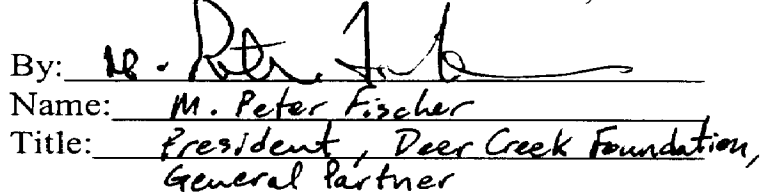 By: M. Peter Fischer
Name: M. Peter Fischer
Title: President, Deer Creek Foundation,
General Partner